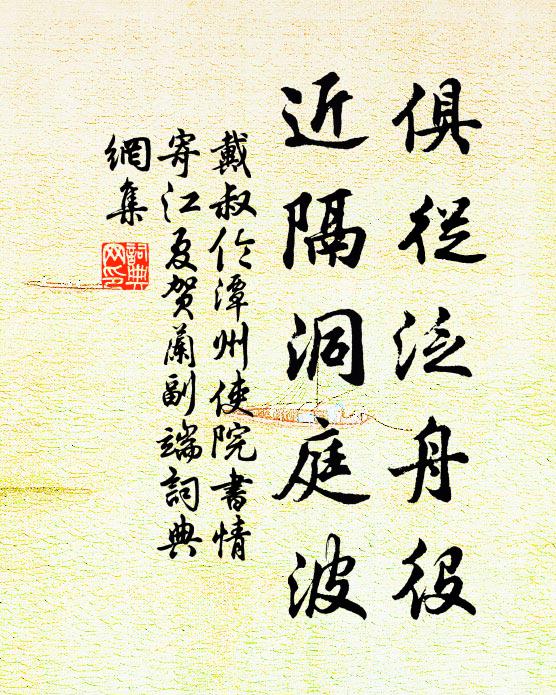 俱從泛舟役
近隔洞庭波
戴叔伦潭州使院書情
寄江夏賀蘭副端詞典
網集
詞典网印